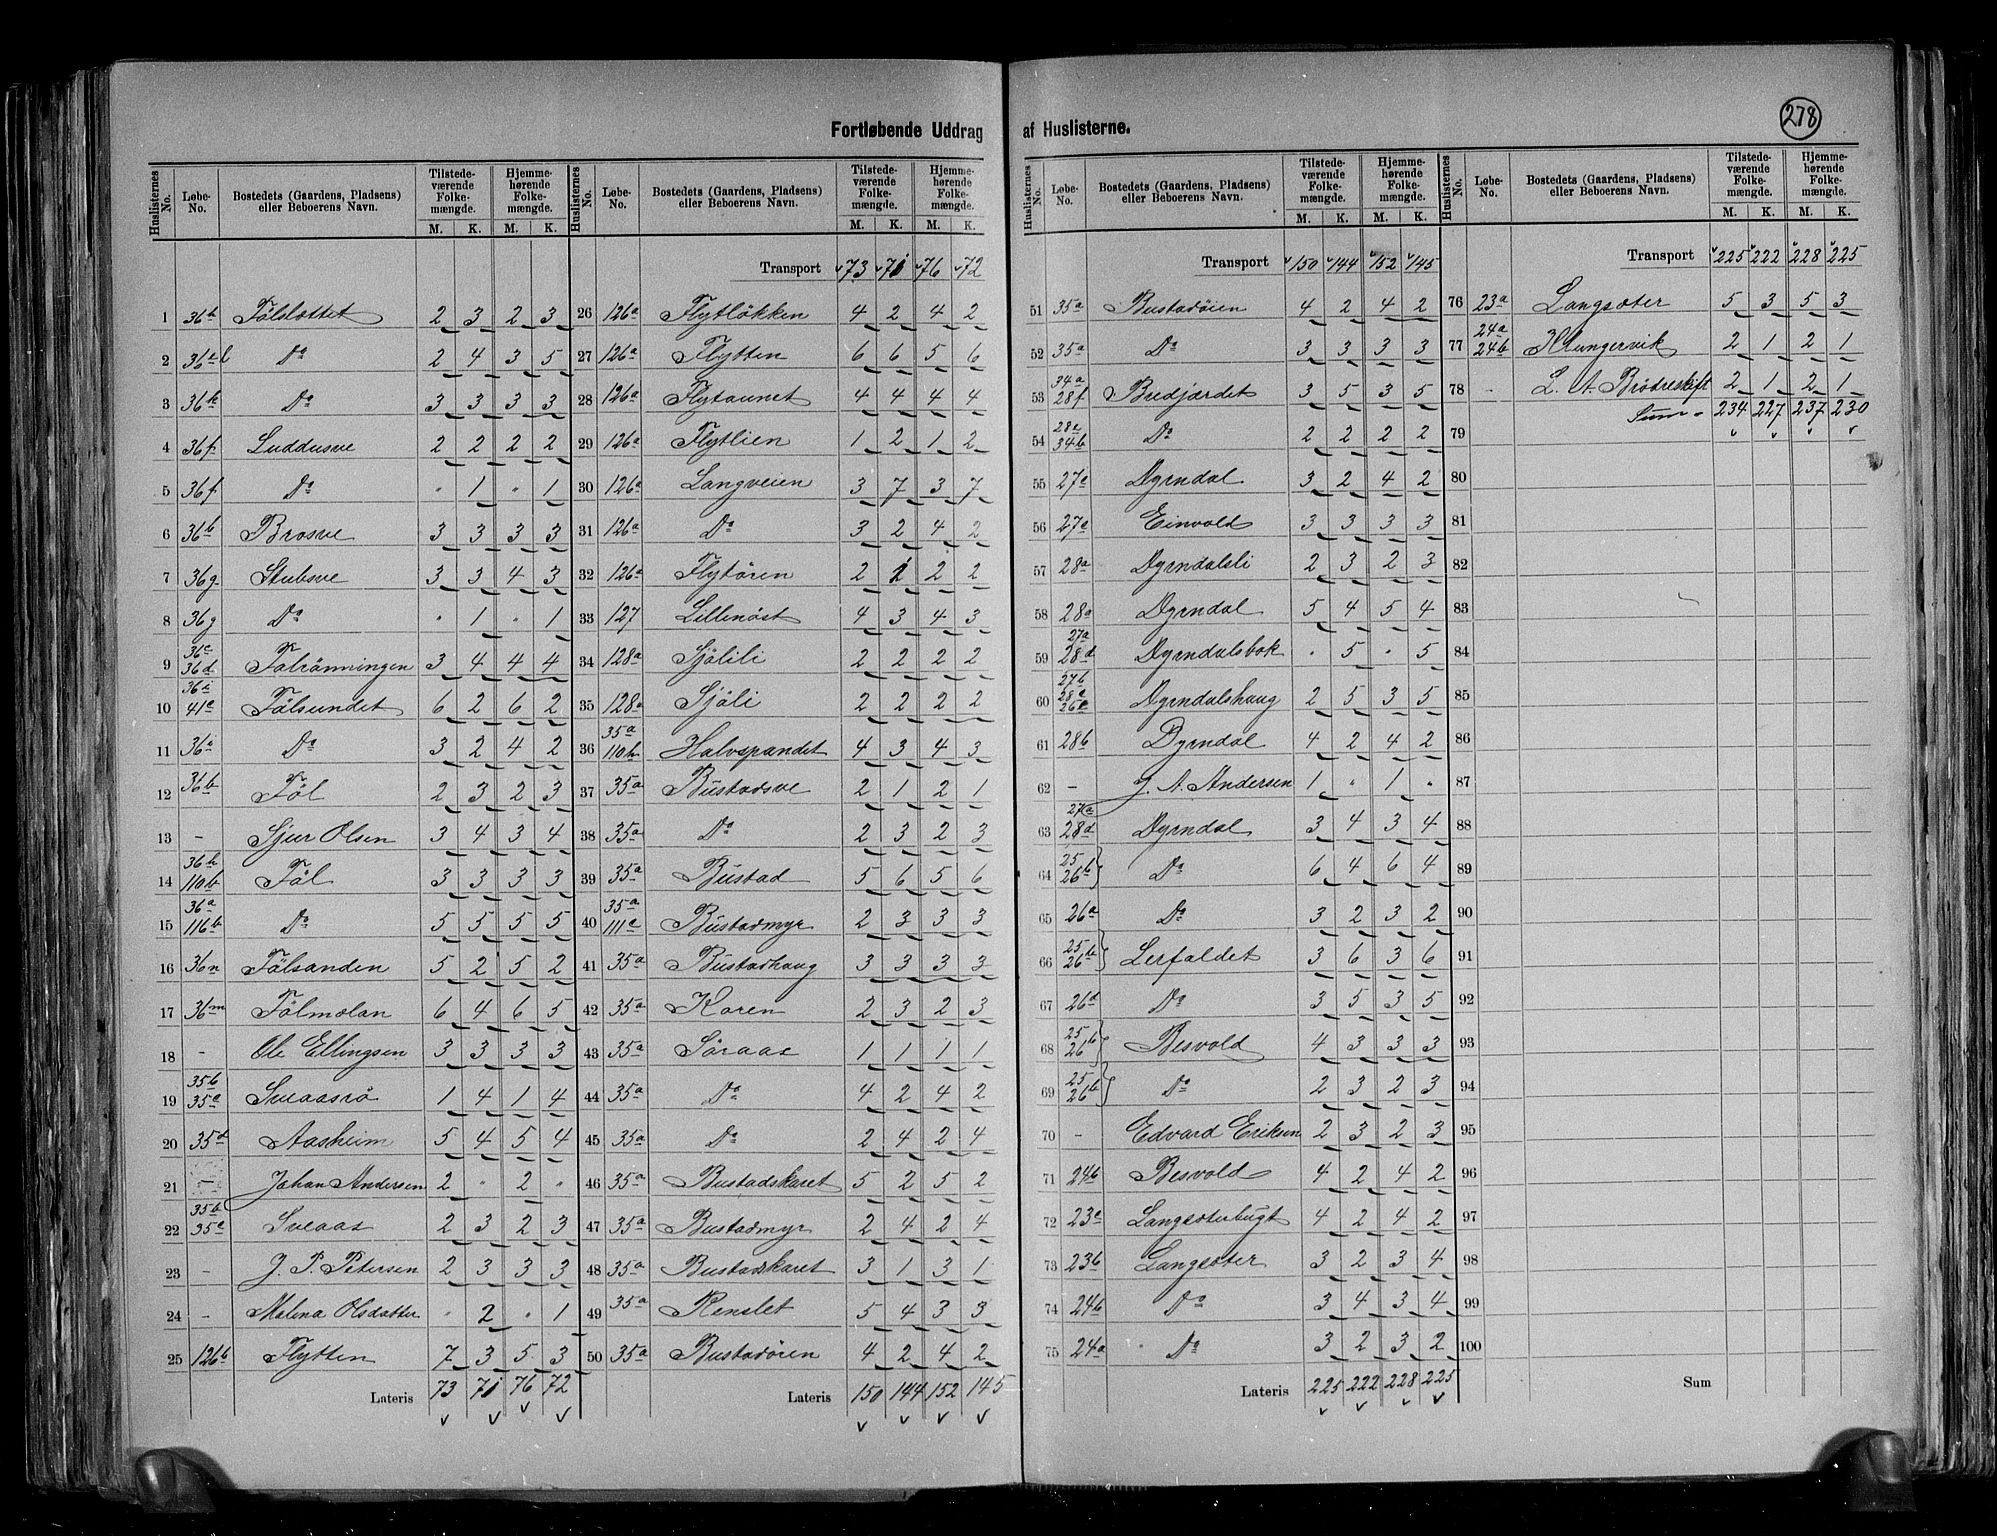 278
Fortløbende Uddrag af Huslisternes.
Huslisternes No. | Løbe-No. | Bostedets (Gaardens, Pladsens) eller Beboerens Navn. | Tilstedeværende Folkemængde. M. K. | Hjemmehørende Folkemængde. M. K.
1 36b Fölslottet 2 3 2 3
2 36e Do 2 4 3 5
3 36k Do 3 3 3 3
4 36f Luddusve 2 2 2 2
5 36f Do " 1 " 1
6 36b Brosve 3 3 3 3
7 36g Stubsve 3 3 4 3
8 36g Do " 1 " 1
9 36c 36d Følrönningen 3 4 4 4
10 36i 41e Fölsundet 6 2 6 2
11 36i Do 3 2 4 2
12 36b Föl 2 3 2 3
13 - Sjur Olsen 3 4 3 4
14 36h 110b Föl 3 3 3 3
15 36a 116b Do 5 5 5 5
16 36n Fölsanden 5 2 5 2
17 36m Fölmolan 6 4 6 5
18 - Ole Ellingsen 3 3 3 3
19 35b 35e Sveaasrö 1 4 1 4
20 35d Aasheim 5 4 5 4
21 - Johan Andersen 2 " 2 "
22 35b 35e Sveaas 2 3 2 3
23 - J. P. Petersen 2 3 3 3
24 - Malena Olsdatter " 2 " 1
25 126b Flytten 7 3 5 3
Lateris 73 71 76 72
Huslisternes No. | Løbe-No. | Bostedets (Gaardens, Pladsens) eller Beboerens Navn. | Tilstedeværende Folkemængde. M. K. | Hjemmehørende Folkemængde. M. K.
Transport 73 71 76 72
26 126a Flytløkken 4 2 4 2
27 126a Flytten 6 6 5 6
28 126a Flytaunet 4 4 4 4
29 126a Flytlien 1 2 1 2
30 126a Langveien 3 7 3 7
31 126a Do 3 2 4 2
32 126a Flytören 2 1 2 2
33 127 Lillemöst 4 3 4 3
34 128a Sjölili 2 2 2 2
35 128a Sjöli 2 2 2 2
36 35a 110b Halvspandet 4 3 4 3
37 35a Bustadsve 2 1 2 1
38 35a Do 2 3 2 3
39 35a Bustad 5 6 5 6
40 35a 111e Bustadmyr 2 3 3 3
41 35a Bustadhaug 3 3 3 3
42 35a Karen 2 3 2 3
43 35a Söraas 1 1 1 1
44 35a Do 4 2 4 2
45 35a Do 2 4 2 4
46 35a Bustadskaret 5 2 5 2
47 35a Bustadmyr 2 4 2 4
48 35a Bustadskaret 3 1 3 1
49 35a Renslet 5 4 3 3
50 35a Bustadöien 4 2 4 2
Lateris 150 144 152 145
Huslisternes No. | Løbe-No. | Bostedets (Gaardens, Pladsens) eller Beboerens Navn. | Tilstedeværende Folkemængde. M. K. | Hjemmehørende Folkemængde. M. K.
Transport 150 144 152 145
51 35a Bustadöien 4 2 4 2
52 35a Do 3 3 3 3
53 34a 28f Bredjördet 3 5 3 5
54 28e 34b Do 2 2 2 2
55 27e Dyrndal 3 2 4 2
56 27e Einvold 3 3 3 3
57 28a Dyrndalsli 2 3 2 3
58 28a Dyrndal 5 4 5 4
59 27a 28d Dyrndalsbok " 5 " 5
60 27b 28e 26e Dyrndalshaug 2 5 3 5
61 28b Dyrndal 4 2 4 2
62 - J. A. Andersen 1 " 1 "
63 27a 28d Dyrndal 3 4 3 4
64 25 26b Do 6 4 6 4
65 26a Do 3 2 3 2
66 25 26b Lerfaldet 3 6 3 6
67 26d Do 3 5 3 5
68 25 26b Besvold 4 3 3 3
69 25 26b Do 2 3 2 3
70 - Edvard Eriksen 2 3 2 3
71 24b Besvold 4 2 4 2
72 23e Langsøterbugt 4 2 4 2
73 23b Langsøter 3 2 3 4
74 24b Do 3 4 3 4
75 24a Do 3 2 3 2
Lateris 225 222 228 225
Huslisternes No. | Løbe-No. | Bostedets (Gaardens, Pladsens) eller Beboerens Navn. | Tilstedeværende Folkemængde. M. K. | Hjemmehørende Folkemængde. M. K.
Transport 225 222 228 225
76 23a Langsøter 5 3 5 3
77 24a 24b Hungervik 2 1 2 1
78 - L. A. Brödreskift 2 1 2 1
Sum - 234 227 237 230
79
80
81
82
83
84
85
86
87
88
89
90
91
92
93
94
95
96
97
98
99
100
Sum